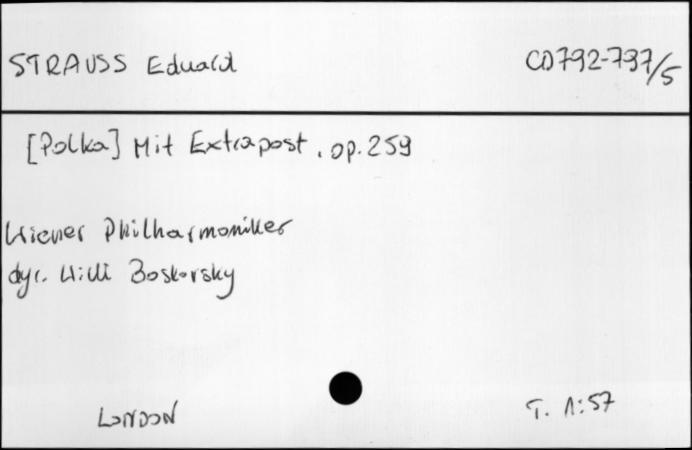 STRAUSS Eduard
CD792-797/5
[Polka] Mit Extrapost, op. 259
Wiener Philharmoniker
dyr. Willi Boskovsky
LONDON
T. 1:57